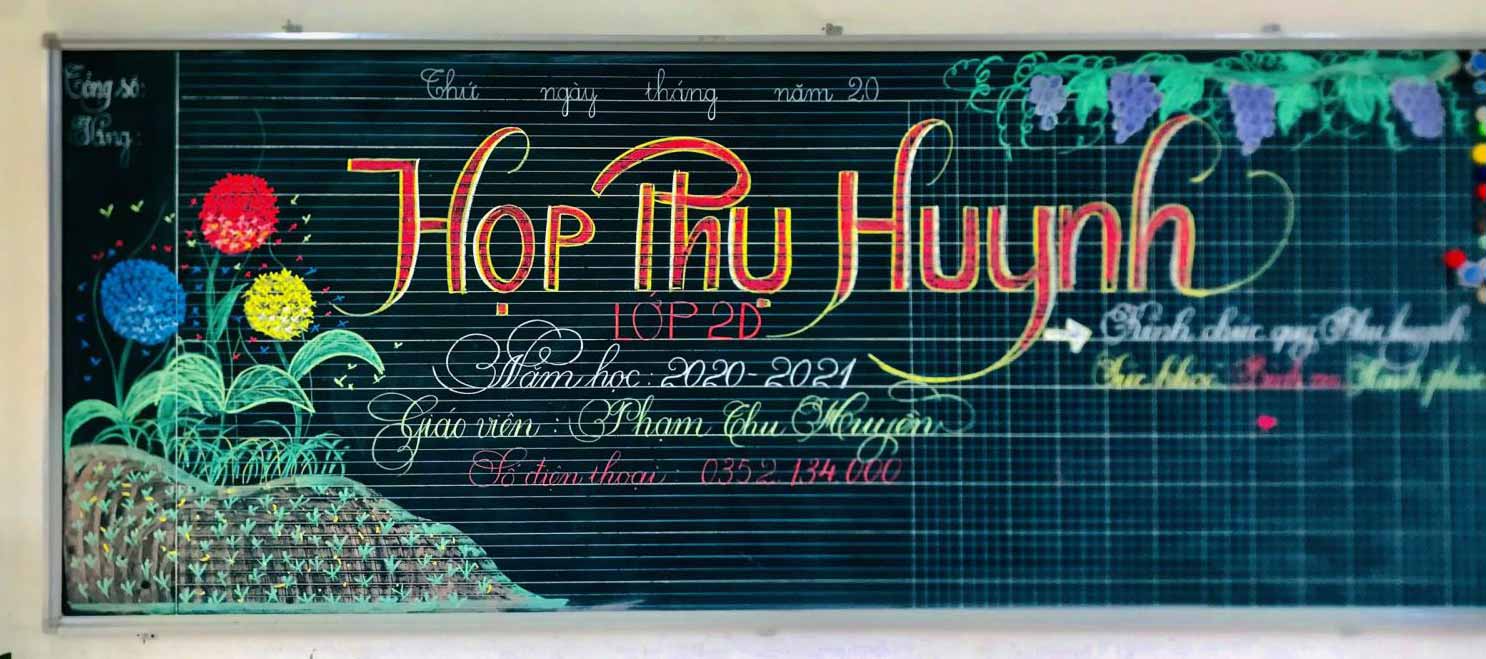 Tổng số:
Vắng:
Thứ ngày tháng năm 20
Họp Phụ Huynh
LỚP 2D
Năm học: 2020-2021
Giáo viên: Phạm Thu Huyền
Số điện thoại: 0352.134.000
Kính chúc quý Phụ huynh
Sức khỏe Bình an Hạnh phúc